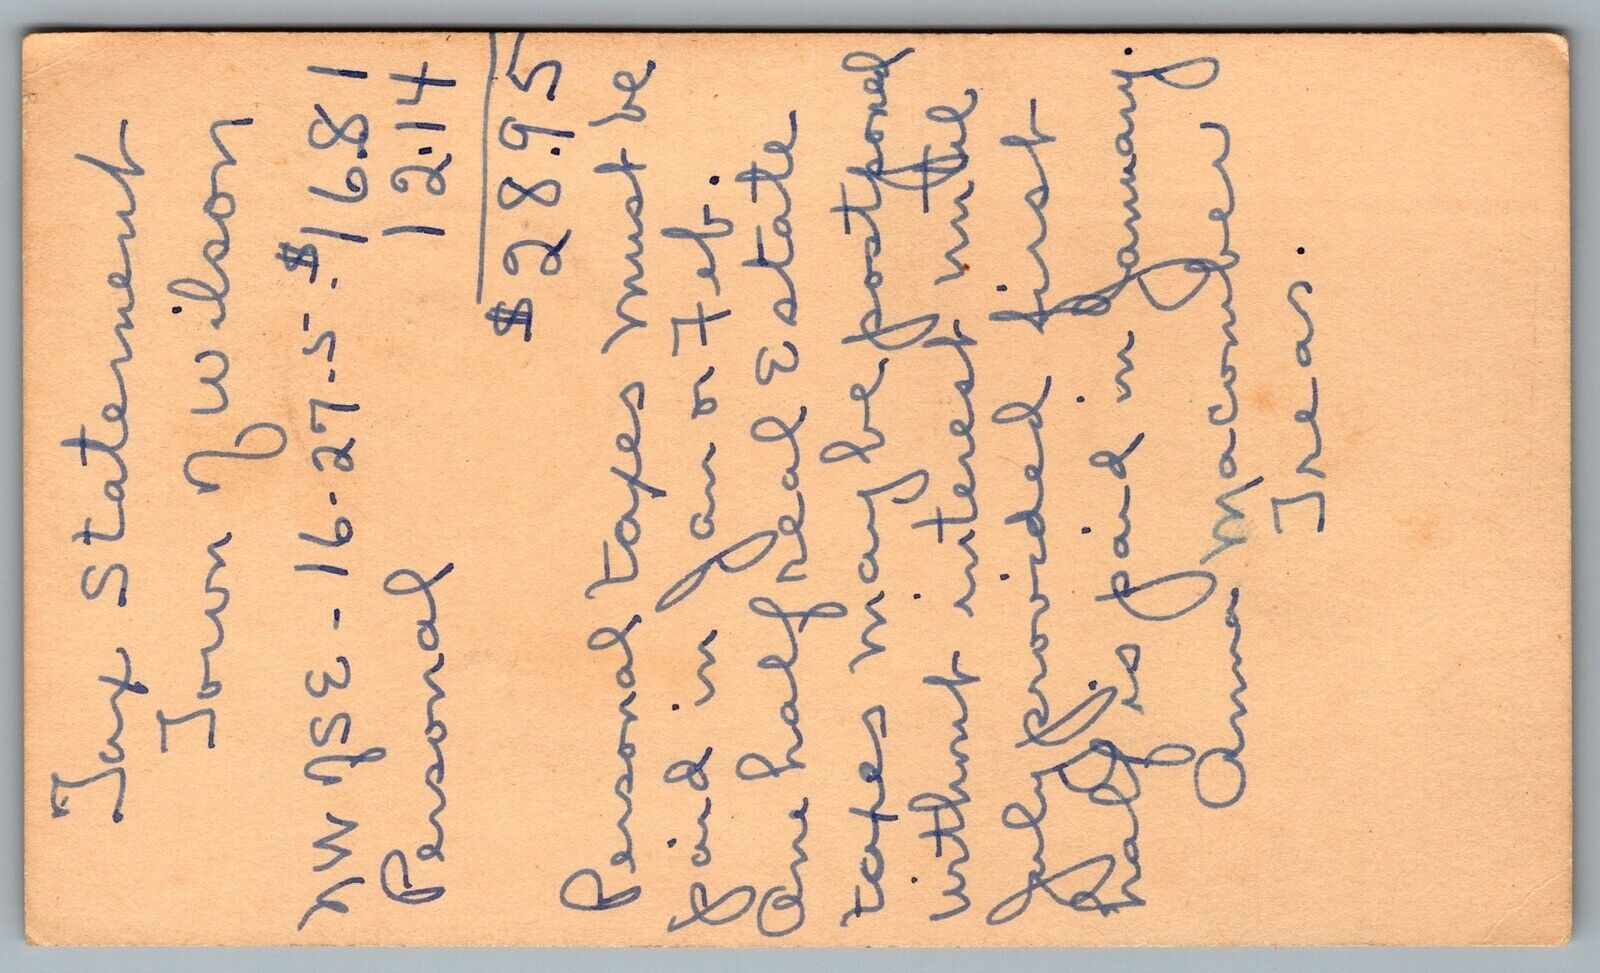 Tax Statement
Town Wilson
NW of SE - 16-27-5 - $16.81
Personal 12.14
$28.95
Personal taxes must be
paid in Jan or Feb.
One half real Estate
taxes may be postponed
without interest until
July 31 provided first
half is paid in January.
Anna Macomber
Treas.